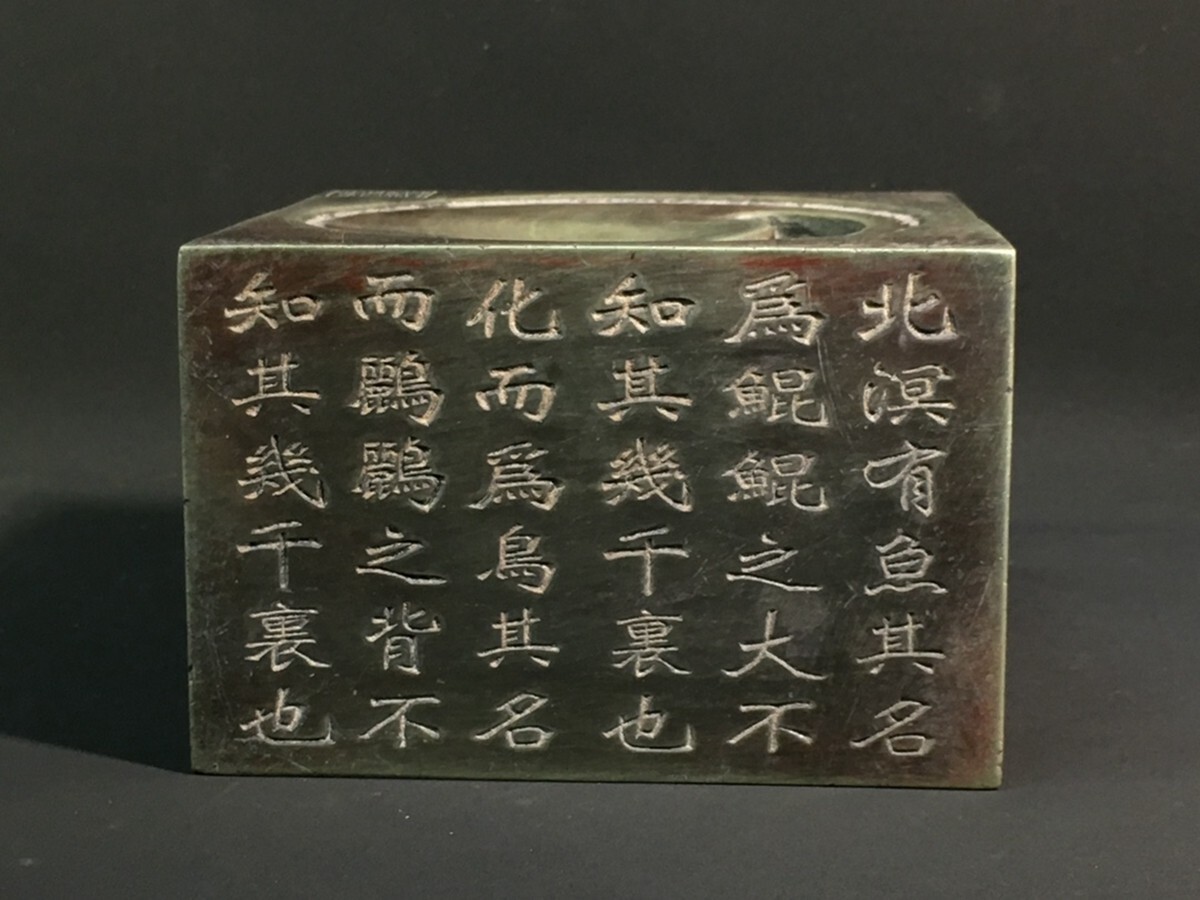 北溟有魚其名
爲鯤鯤之大不
知其幾千裏也
化而爲鳥其名
而鸝鸝之背不
知其幾千裏也